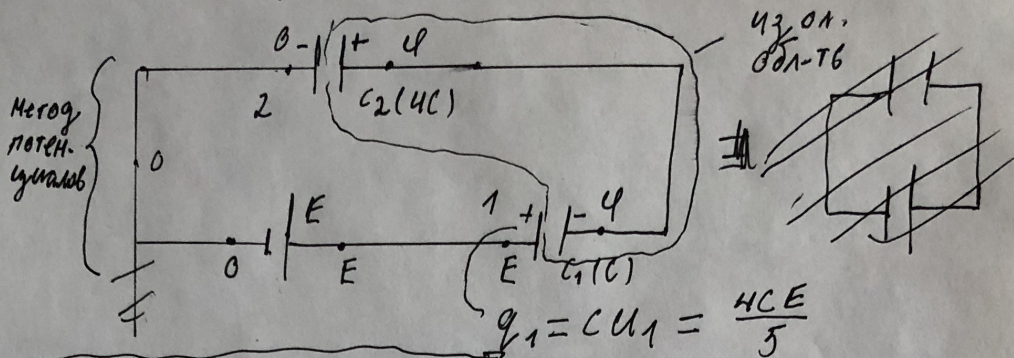 Метод
потен-
циалов
0 - + φ
2 C₂(4C)
0
из ол.
обл-ть
E 1 + - φ
0 E E C₁(C)
q₁ = CU₁ = 4CE/5